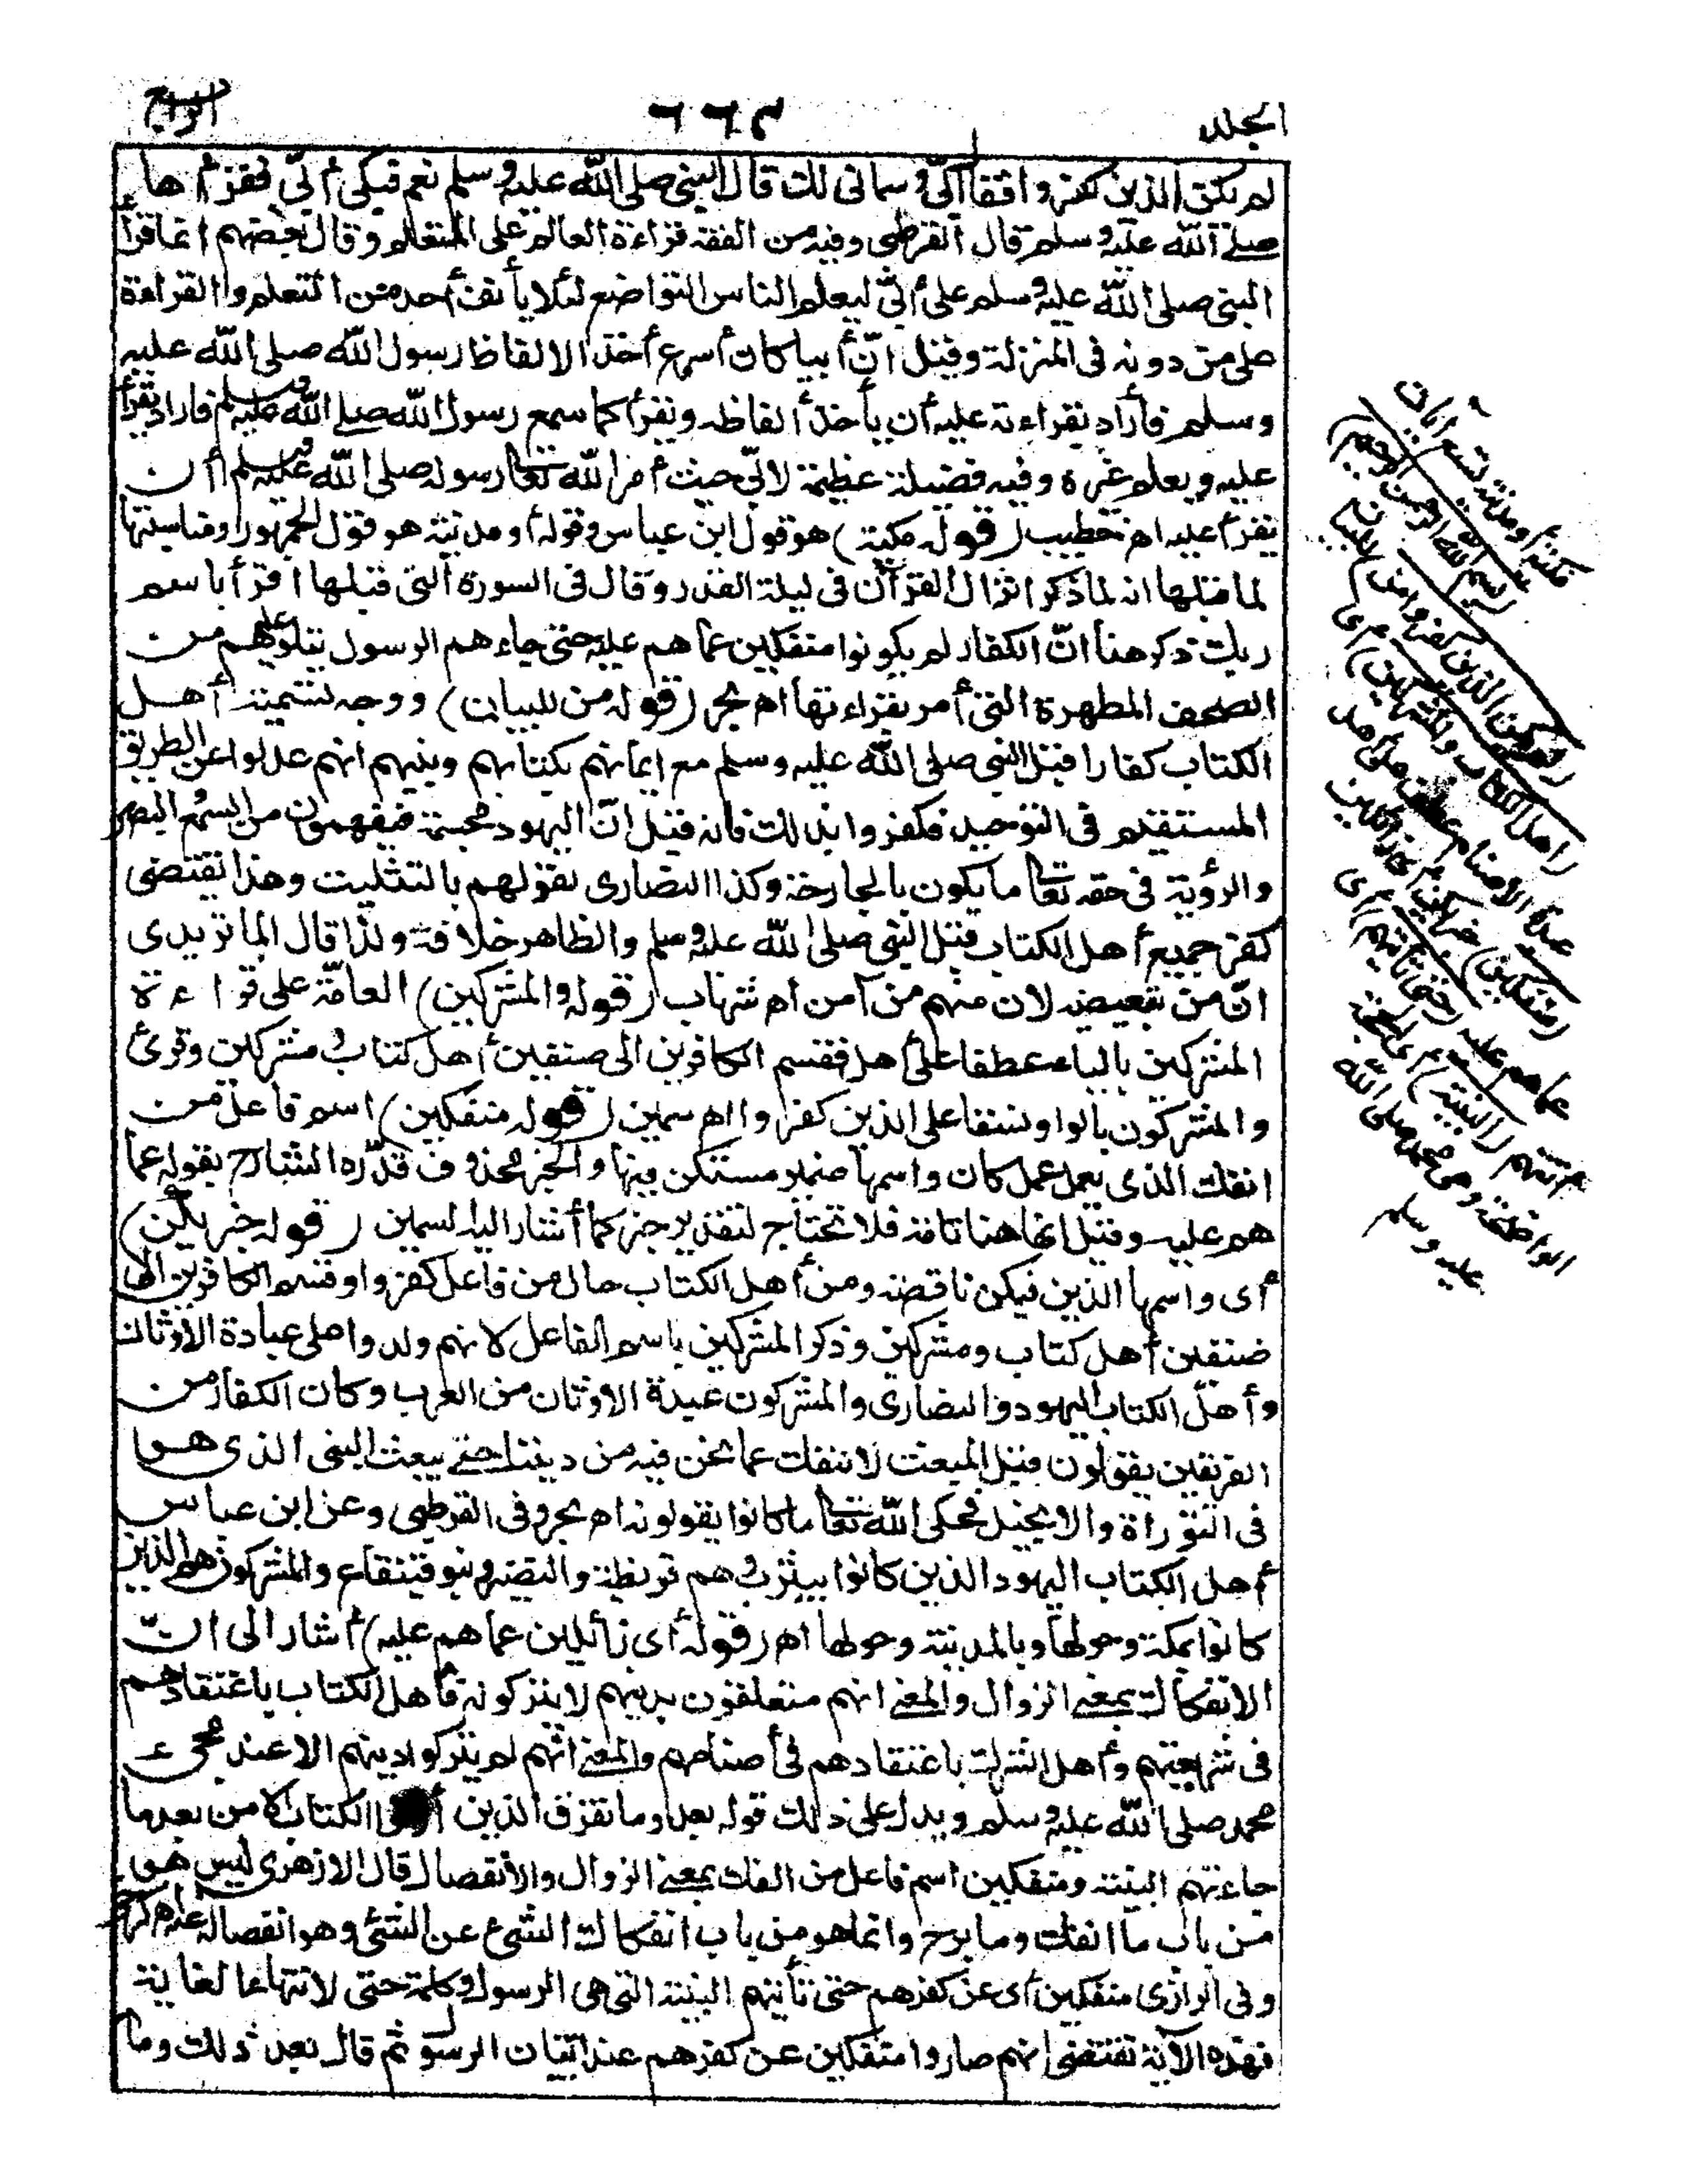 الجلد ٦٦٣ الرابع
لم يكن الذين كفروا فقال أُبيّ وسماني لك قال النبي صلى الله عليه وسلم نعم فبكى أُبيّ فقرأها
صلى الله عليه وسلم قال القرطبي وفيه من الفقه قراءة العالم على المتعلم وقال بعضهم انما قرأ
النبي صلى الله عليه وسلم على أُبيّ ليعلم الناس التواضع لئلا يأنف أحد من التعلم والقراءة
على من دونه فى المنزلة وقيل انّ أبيا كان أسرع أخذ الالفاظ رسول الله صلى الله عليه
وسلم فأراد بقراءته عليه أن يأخذ ألفاظه ويقرأ كما سمع رسول الله صلى الله عليه وسلم فاراد يقرأ
عليه ويعلم غيره وفيه فضيلة عظيمة لابيّ حيث أمر الله تعالى رسوله صلى الله عليه وسلم أن
يقرأ عليه اه خطيب (قوله مكية) هو قول ابن عباس وقوله أو مدنية هو قول الجمهور ومناسبتها
لما قبلها انه لما ذكر انزال القرآن فى ليلة القدر وقال فى السورة التى قبلها اقرأ باسم
ربك ذكر هنا انّ الكفار لم يكونوا منفكين عما هم عليه حتى جاءهم الرسول يتلو عليهم من
الصحف المطهرة التى أمر بقراءتها اه بحر (قوله من للبيان) ووجه تسمية أهل
الكتاب كفارا قبل النبي صلى الله عليه وسلم مع ايمانهم بكتابهم ونبيهم انهم عدلوا عن الطريق
المستقيم فى التوحيد فكفروا بذلك فانه قيل انّ اليهود مجسمة فيفهمون من السمع والبصر
والرؤية فى حقه تعالى ما يكون بالجارحة وكذا النصارى لقولهم بالتثليث وهذا يقتضى
كفر جميع أهل الكتاب قبل النبي صلى الله عليه وسلم والظاهر خلافه ولذا قال الماتريدى
انّ من تبعيضه لان منهم من آمن اه شهاب (قوله والمشركين) العامّة على قراءة
المشركين بالياء عطفا على أهل فقسم الكافرين الى صنفين أهل كتاب ومشركين وقرئ
والمشركون بالواو نسقا على الذين كفروا اه سمين (قوله منفكين) اسم فاعل من
انفك الذى يعمل عمل كان واسمها ضمير مستكن فيها والخبر محذوف قدّره الشارح بقوله عما
هم عليه وقيل انها هنا تامة فلا تحتاج لتقدير خبر كما أشار اليه السمين (قوله خبر يكن)
أى واسمها الذين فيكن ناقصة ومن أهل الكتاب حال من فاعل كفروا وقسم الكافرين الى
صنفين أهل كتاب ومشركين وذكر المشركين باسم الفاعل لانهم ولدوا على عبادة الاوثان
وأهل الكتاب اليهود والنصارى والمشركون عبدة الاوثان من العرب وكان الكفار من
الفريقين يقولون قبل المبعث لا ننفك عما نحن فيه من ديننا حتى يبعث النبى الذى هو
فى التوراة والانجيل فحكى الله تعالى ما كانوا يقولونه اه بحر وفى القرطبى وعن ابن عباس
أهل الكتاب اليهود الذين كانوا بيثرب هم قريظة والنضير وبنو قينقاع والمشركون هم الذين
كانوا بمكة وحولها وبالمدينة وحولها اه (قوله أى زائلين عما هم عليه) أشار الى انّ
الانفكاك بمعنى الزوال والمعنى انهم متعلقون بدينهم لا يتركونه فأهل الكتاب باعتقادهم
فى شريعتهم وأهل الشرك باعتقادهم فى أصنامهم والمعنى انهم لم يتركوا دينهم الا عند مجىء
محمد صلى الله عليه وسلم ويدل على ذلك قوله بعد وما تفرق الذين أوتوا الكتاب الا من بعد ما
جاءتهم البينة ومنفكين اسم فاعل من الفك بمعنى الزوال والانفصال قال الازهرى ليس هو
من باب ما انفك وما برح وانما هو من باب انفكاك الشئ عن الشئ وهو انفصاله عنه اه
وفى الرازى منفكين أى عن كفرهم حتى تأتيهم البينة التى هى الرسول وكلمة حتى لانتهاء الغاية
فهذه الآية تقتضى انهم صاروا منفكين عن كفرهم عند اتيان الرسول ثم قال بعد ذلك وما
مكية أو مدنية تسع آيات
(بسم الله الرحمن الرحيم
لم يكن الذين كفروا من) للبيان
(أهل الكتاب والمشركين) أى
عبدة الأصنام عطف على أهل
(منفكين) خبر يكن أى زائلين
عما هم عليه (حتى تأتيهم) أى
أتتهم (البينة) أى الحجة
الواضحة وهى محمد صلى الله
عليه وسلم